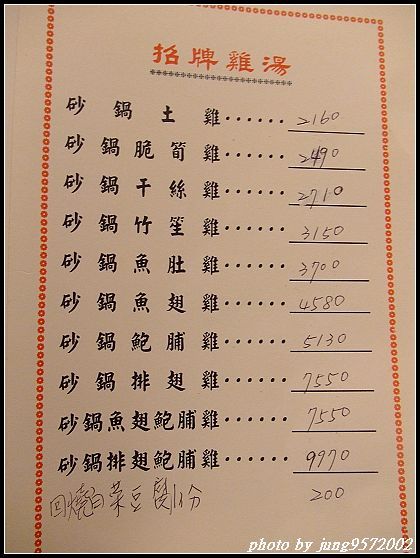 招牌雞湯
砂鍋土雞······2160
砂鍋脆筍雞······2490
砂鍋干絲雞······2710
砂鍋竹笙雞······3150
砂鍋魚肚雞······3700
砂鍋魚翅雞······4580
砂鍋鮑脯雞······5130
砂鍋排翅雞······7550
砂鍋魚翅鮑脯雞······7550
砂鍋排翅鮑脯雞······9970
回燒白菜豆腐1份 200
photo by jang9572002